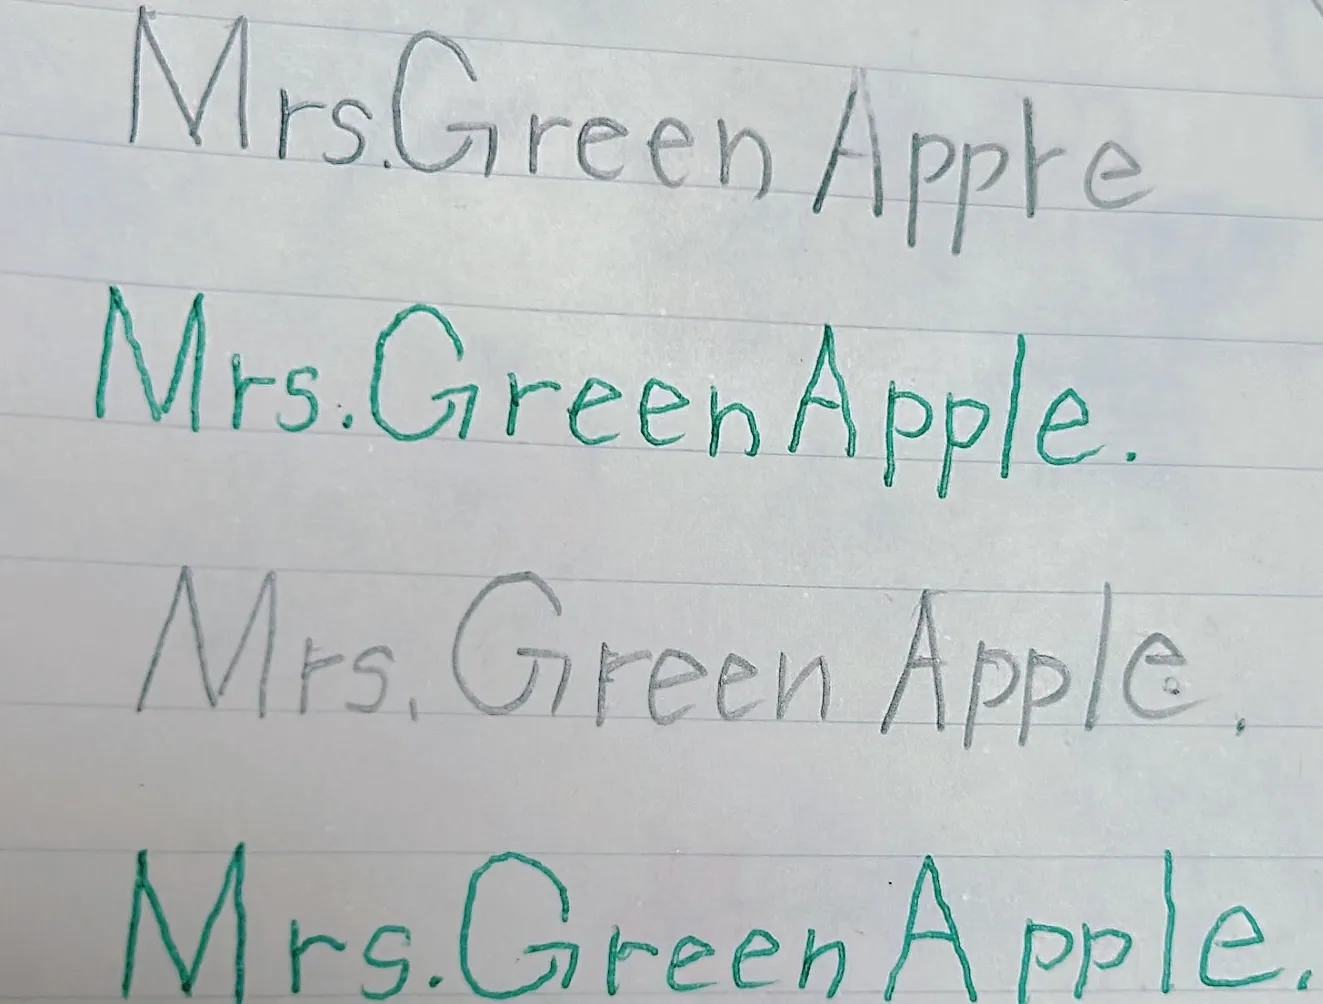 Mrs.Green Appre
Mrs.Green Apple.
Mrs. Green Apple.
Mrs.Green Apple.